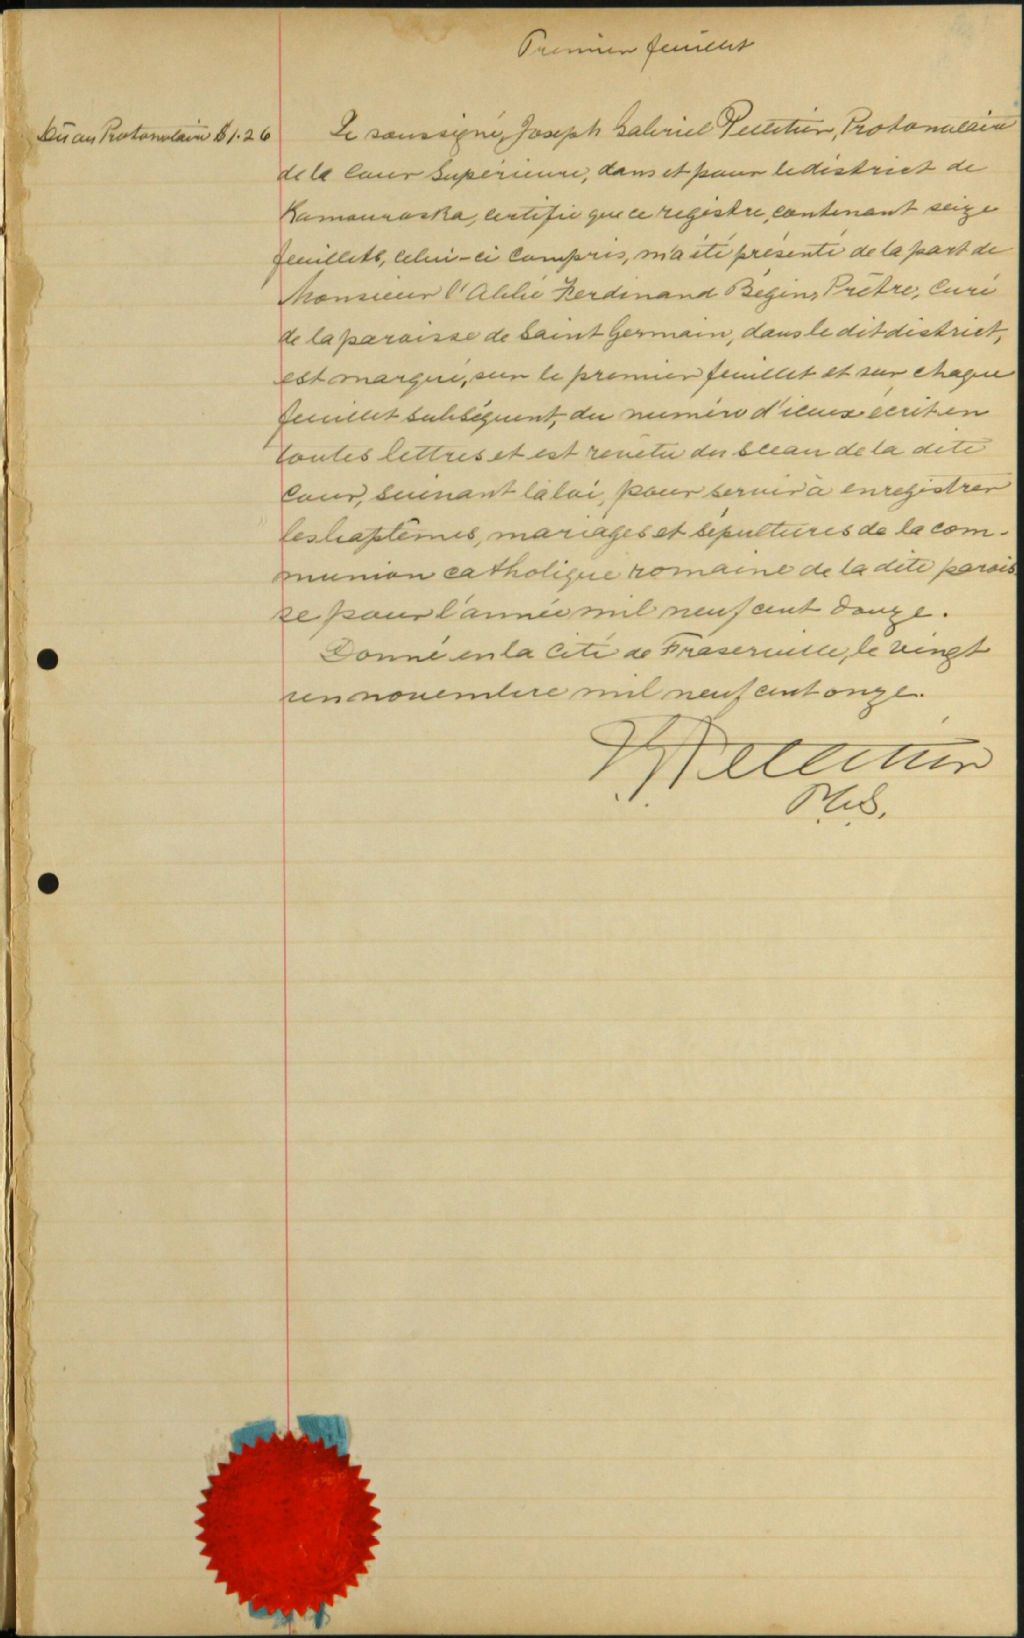 Premier feuillet
Dû au Protonotaire $1.26
Je soussigné, Joseph Gabriel Pelletier, Protonotaire
de la Cour Supérieure, dans et pour le district de
Kamouraska, certifie que ce registre, contenant seize
feuillets, celui-ci compris, m'a été présenté de la part de
Monsieur l'Abbé Ferdinand Bégin, Prêtre, Curé
de la paroisse de Saint Germain, dans le dit district,
est marqué, sur le premier feuillet et sur chaque
feuillet subséquent, du numéro d'iceux écrit en
toutes lettres et est revêtu du sceau de la dite
Cour, suivant la loi, pour servir à enregistrer
les baptêmes, mariages et sépultures de la com-
munion catholique romaine de la dite parois
se pour l'année mil neuf cent douze.
Donné en la Cité de Fraserville, le vingt
un novembre mil neuf cent onze.
JG Pelletier
P.C.S.